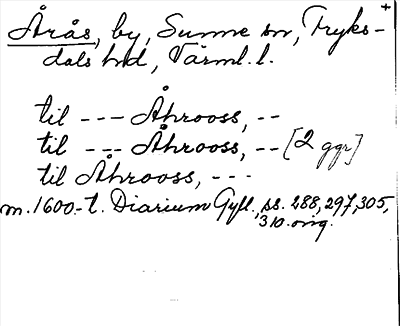 +
Årås, by, Sunne sn, Fryks-
dals hd, Värml. l.
til --- Åhrooss, --
til --- Åhrooss, -- [2 ggr]
til Åhrooss, ---
m. 1600-t. Diarium Gyll., ss. 288, 297, 305,
310. orig.